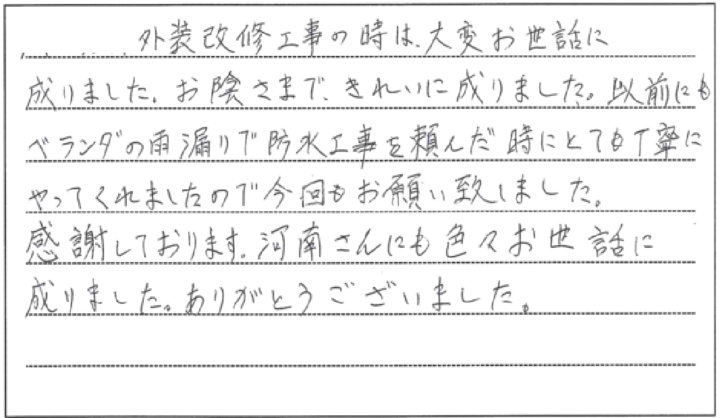 外装改修工事の時は、大変お世話に
成りました。お陰さまで、きれいに成りました。以前にも
ベランダの雨漏りで防水工事を頼んだ時にとても丁寧に
やってくれましたので今回もお願い致しました。
感謝しております。河南さんにも色々お世話に
成りました。ありがとうございました。